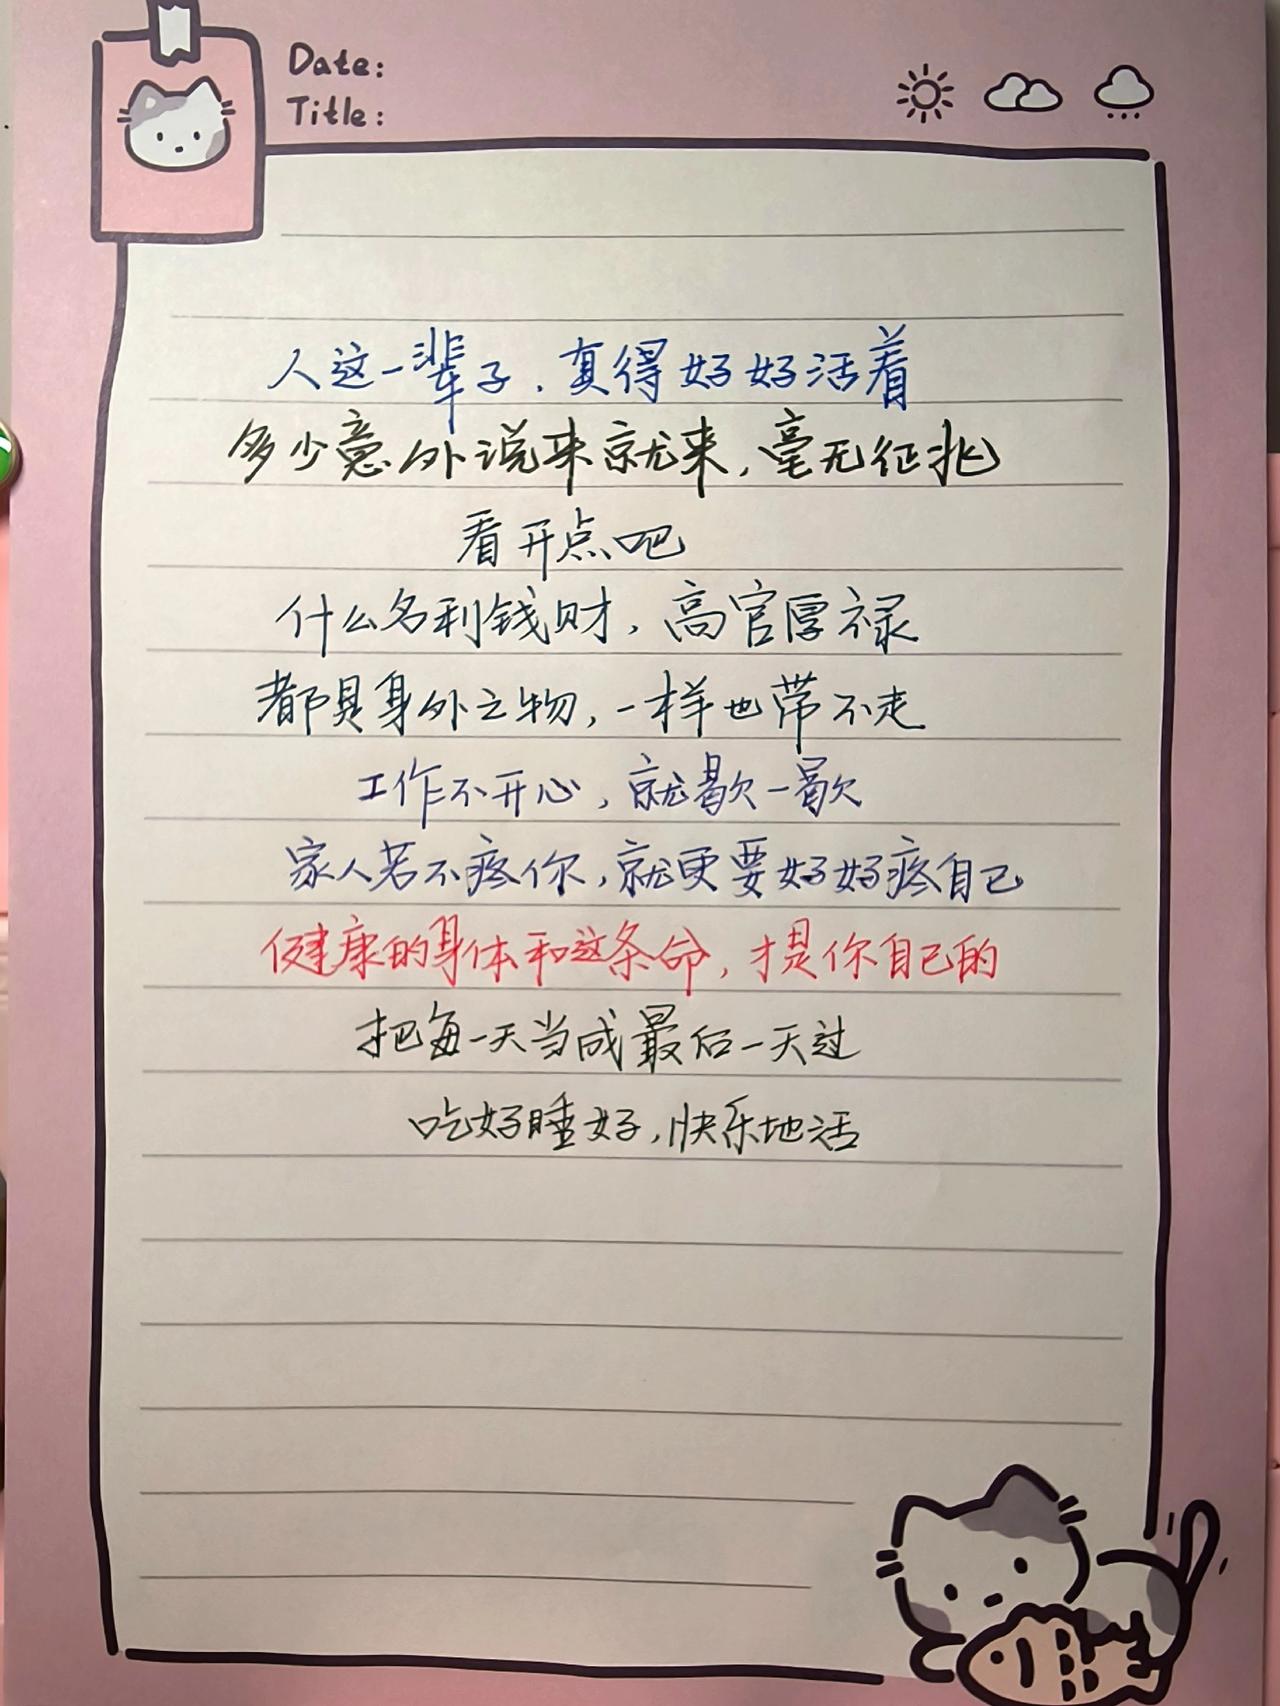 Date:
Title:
人这一辈子,真得好好活着
多少意外说来就来,毫无征兆
看开点吧
什么名利钱财,高官厚禄
都是身外之物,一样也带不走
工作不开心,就歇一歇
家人若不疼你,就更要好好疼自己
健康的身体和这条命,才是你自己的
把每一天当成最后一天过
吃好睡好,快乐地活